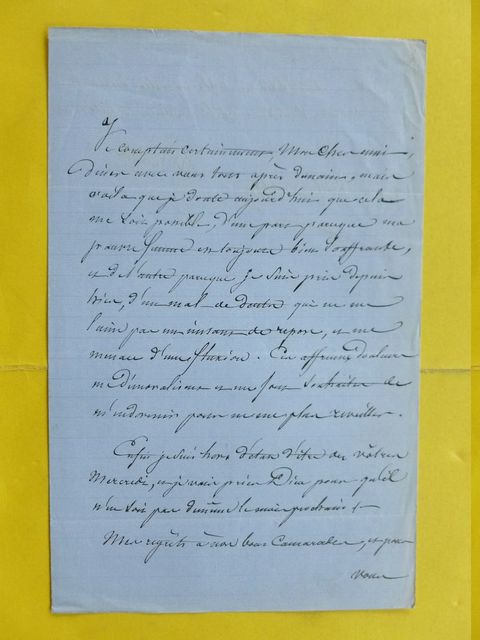 Je comptais certainement, Mon cher ami,
Diner avec vous tous après demain, mais
voila que je doute aujourd'hui que cela
me soit possible, d'une part parceque ma
pauvre femme est toujours bien souffrante,
et de l'autre parceque je suis pris depuis
hier, d'un mal de dents qui ne me
laisse pas un instant de repos, et me
menace d'une fluxion. Ces affreuses douleurs
me démoralisent et me font souhaiter de
m'endormir pour ne me plus réveiller.
Enfin je suis hors d'état d'être des vôtres
Mercredi, et je vais prier Dieu pour qu'il
n'en soit pas de même le mois prochain !
Mes regrets à nos bons Camarades, et pour
vous